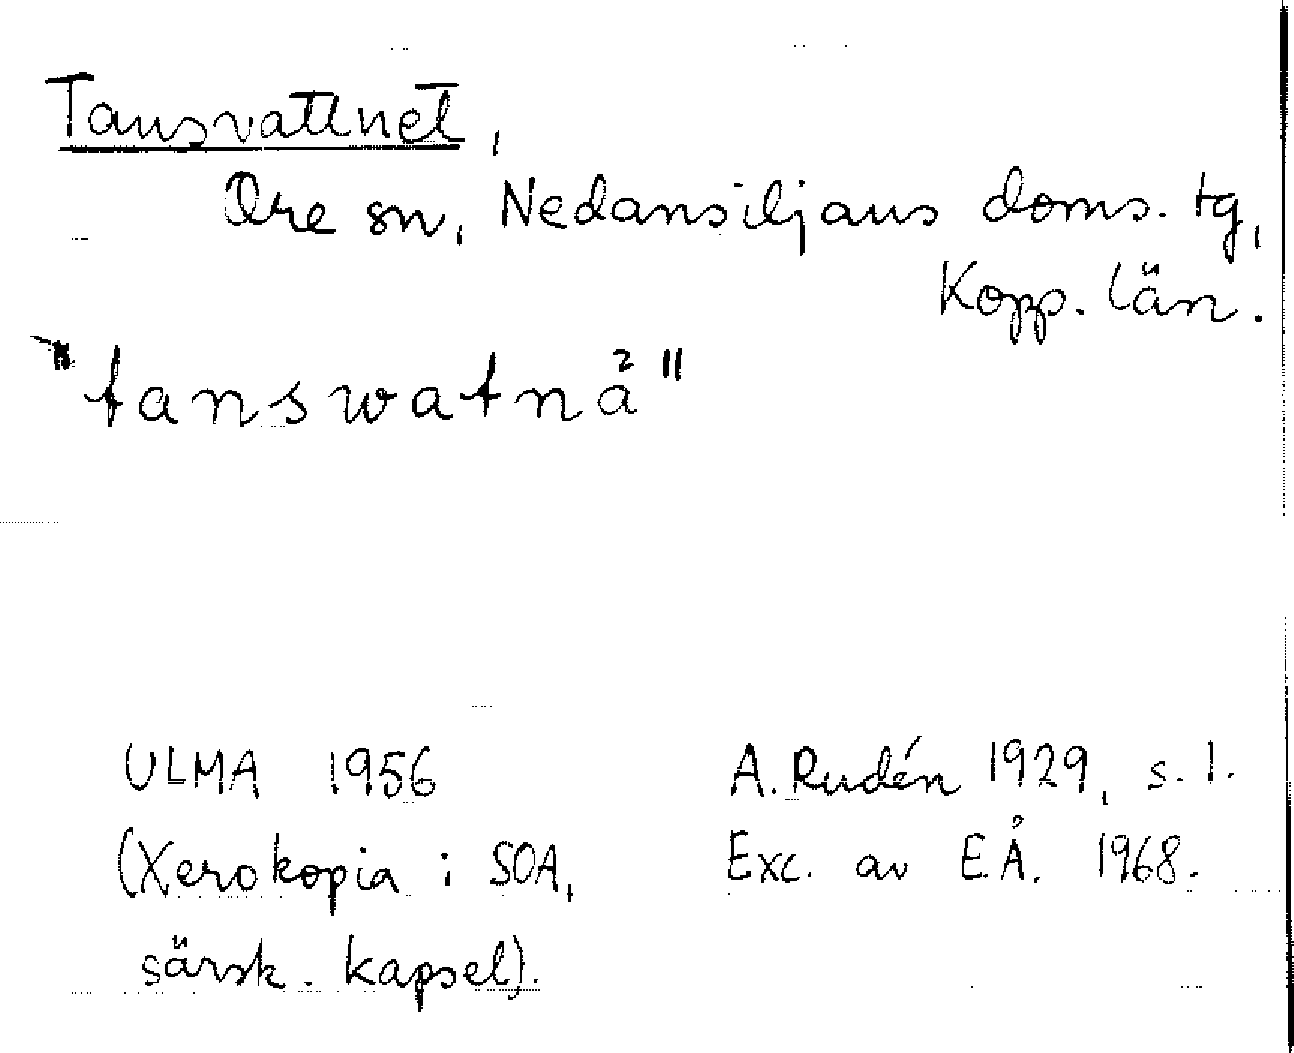 Tansvattnet,
Ore sn, Nedansiljans doms. tg,
Kopp. län.
"tanswatnå"
ULMA 1956
(Xerokopia i SOA,
särsk. kapsel).
A. Rudén 1929, s. 1.
Exc. av E.Å. 1968.